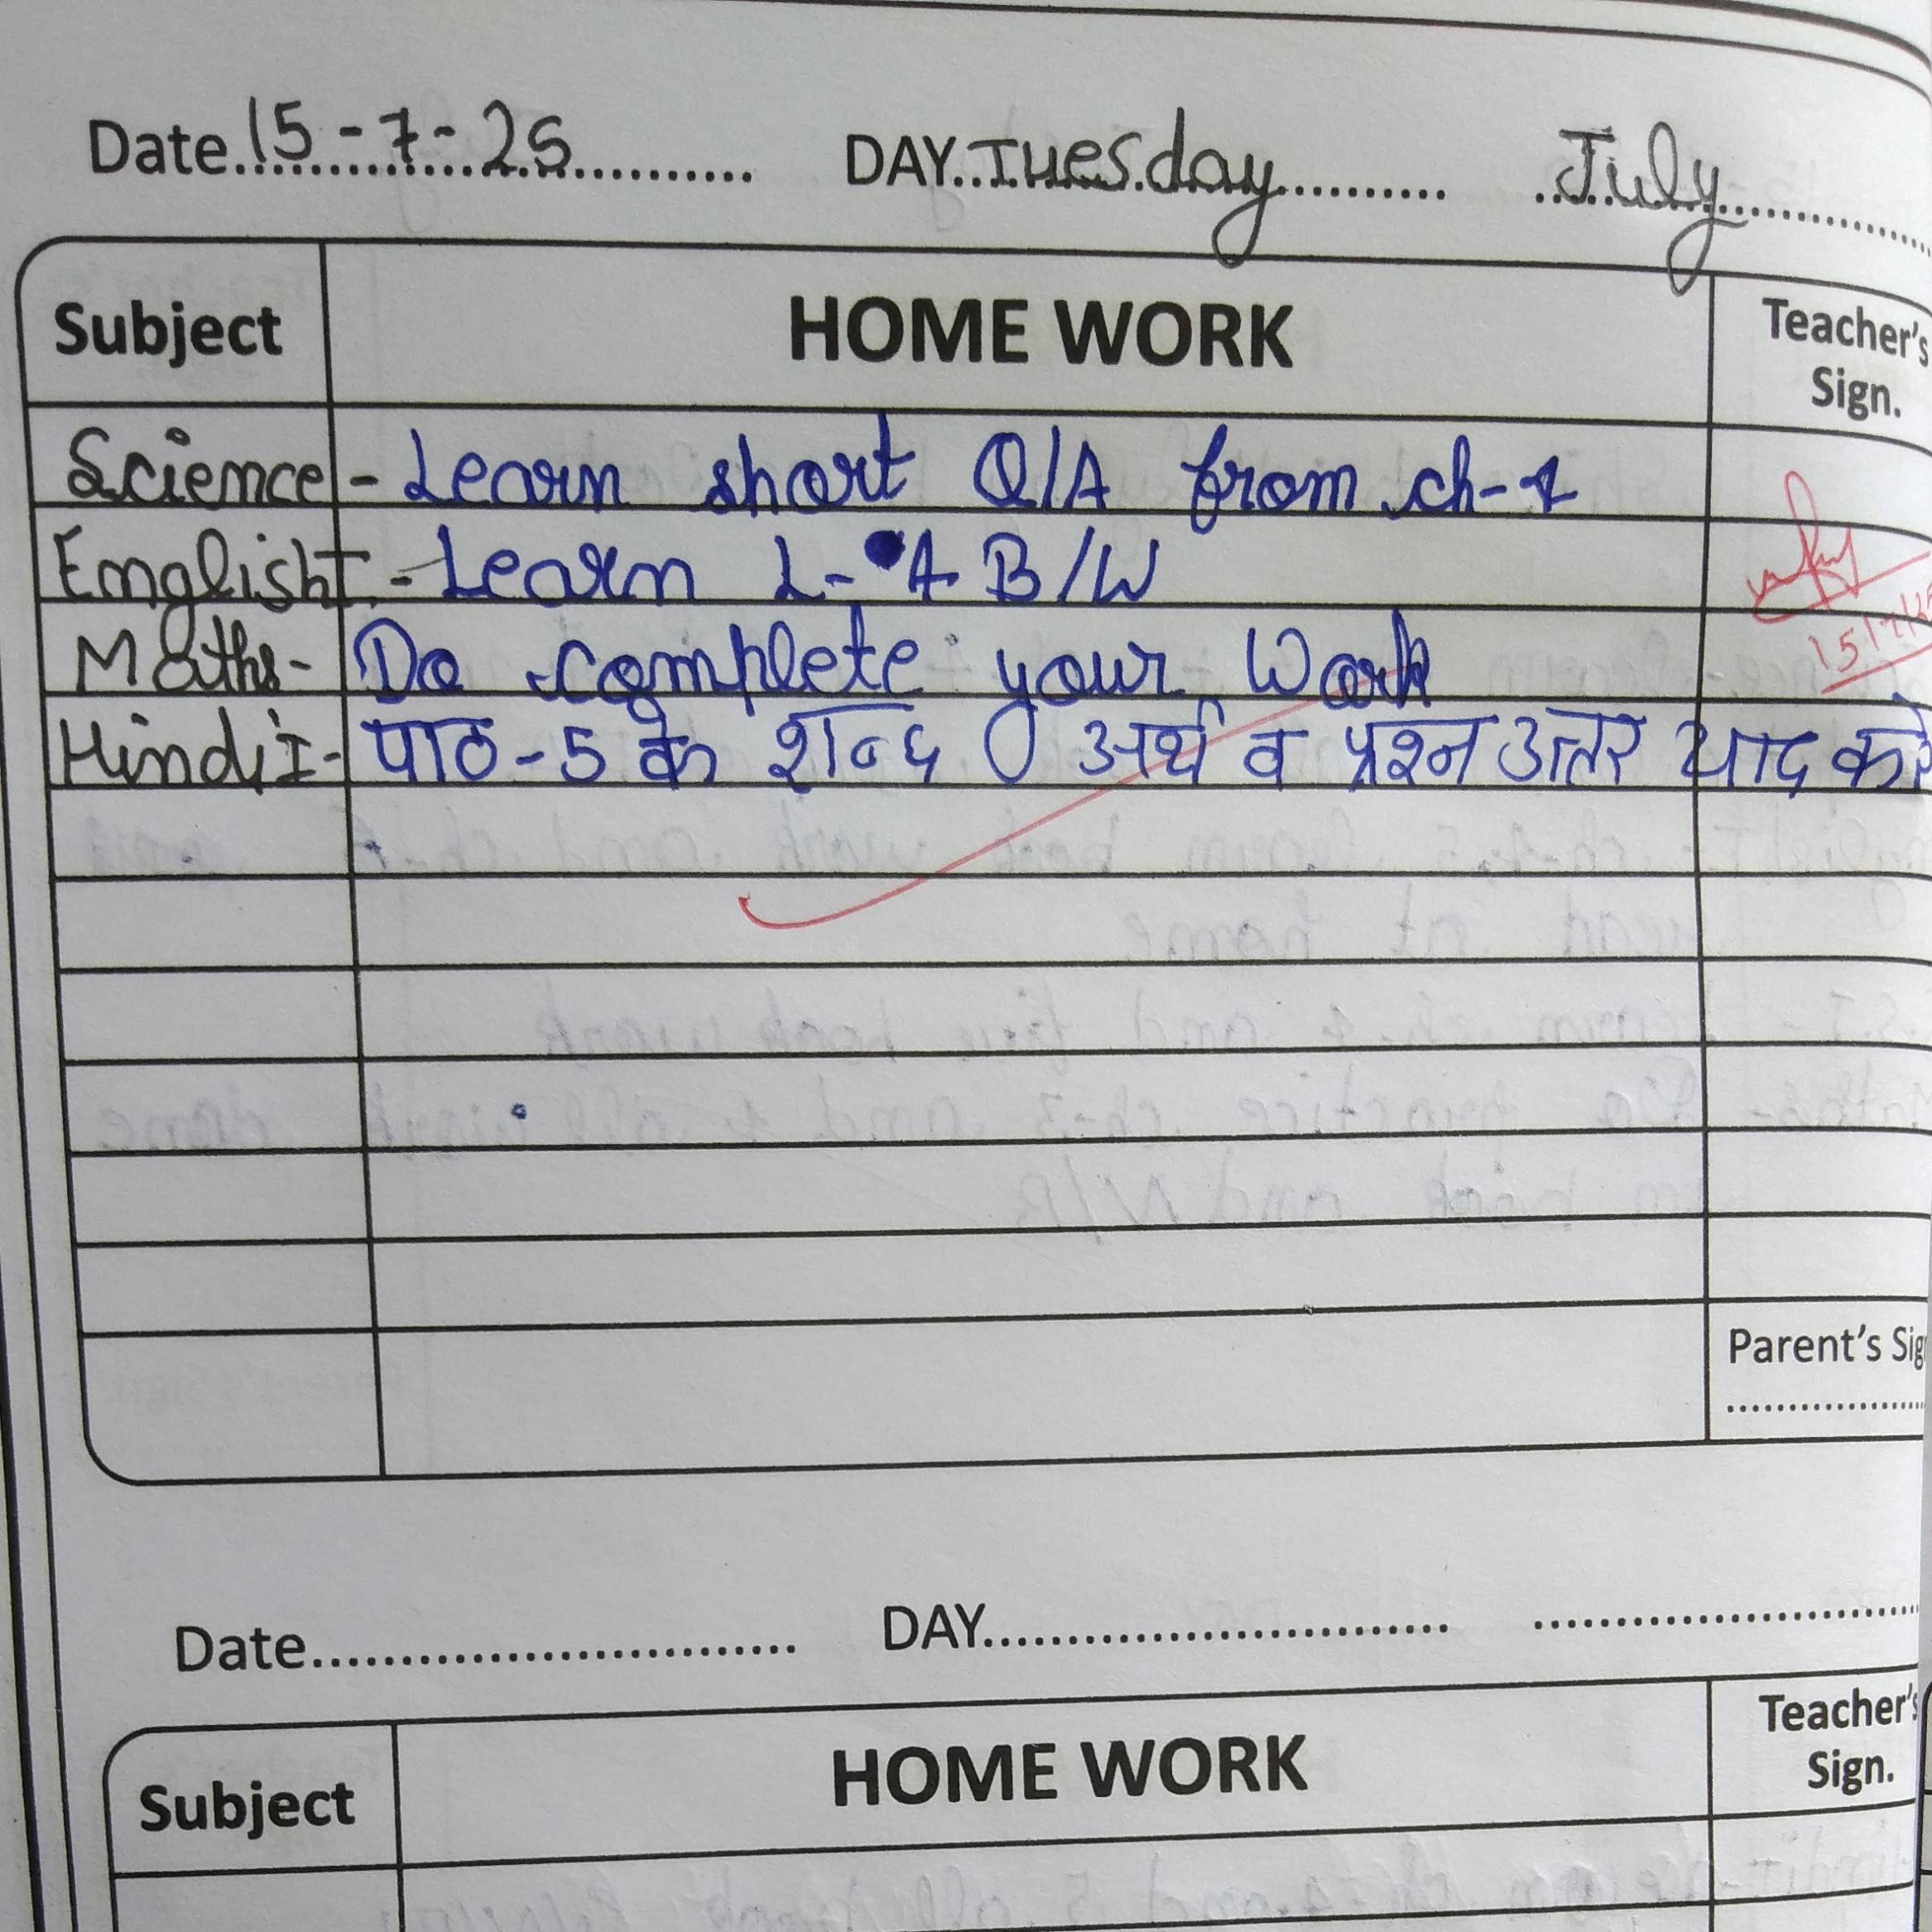 Date. 15-7-25 DAY. Tuesday July
Subject HOME WORK Teacher's Sign.
Science - Learn short Q/A from ch-4
EnglishI - Learn L-4 B/W
Maths - Do complete your Work
HindiI - पाठ-5 के शब्द अर्थ व प्रश्न उत्तर याद करे
15/7/25
Parent's Sig
Date DAY
Subject HOME WORK Teacher's Sign.